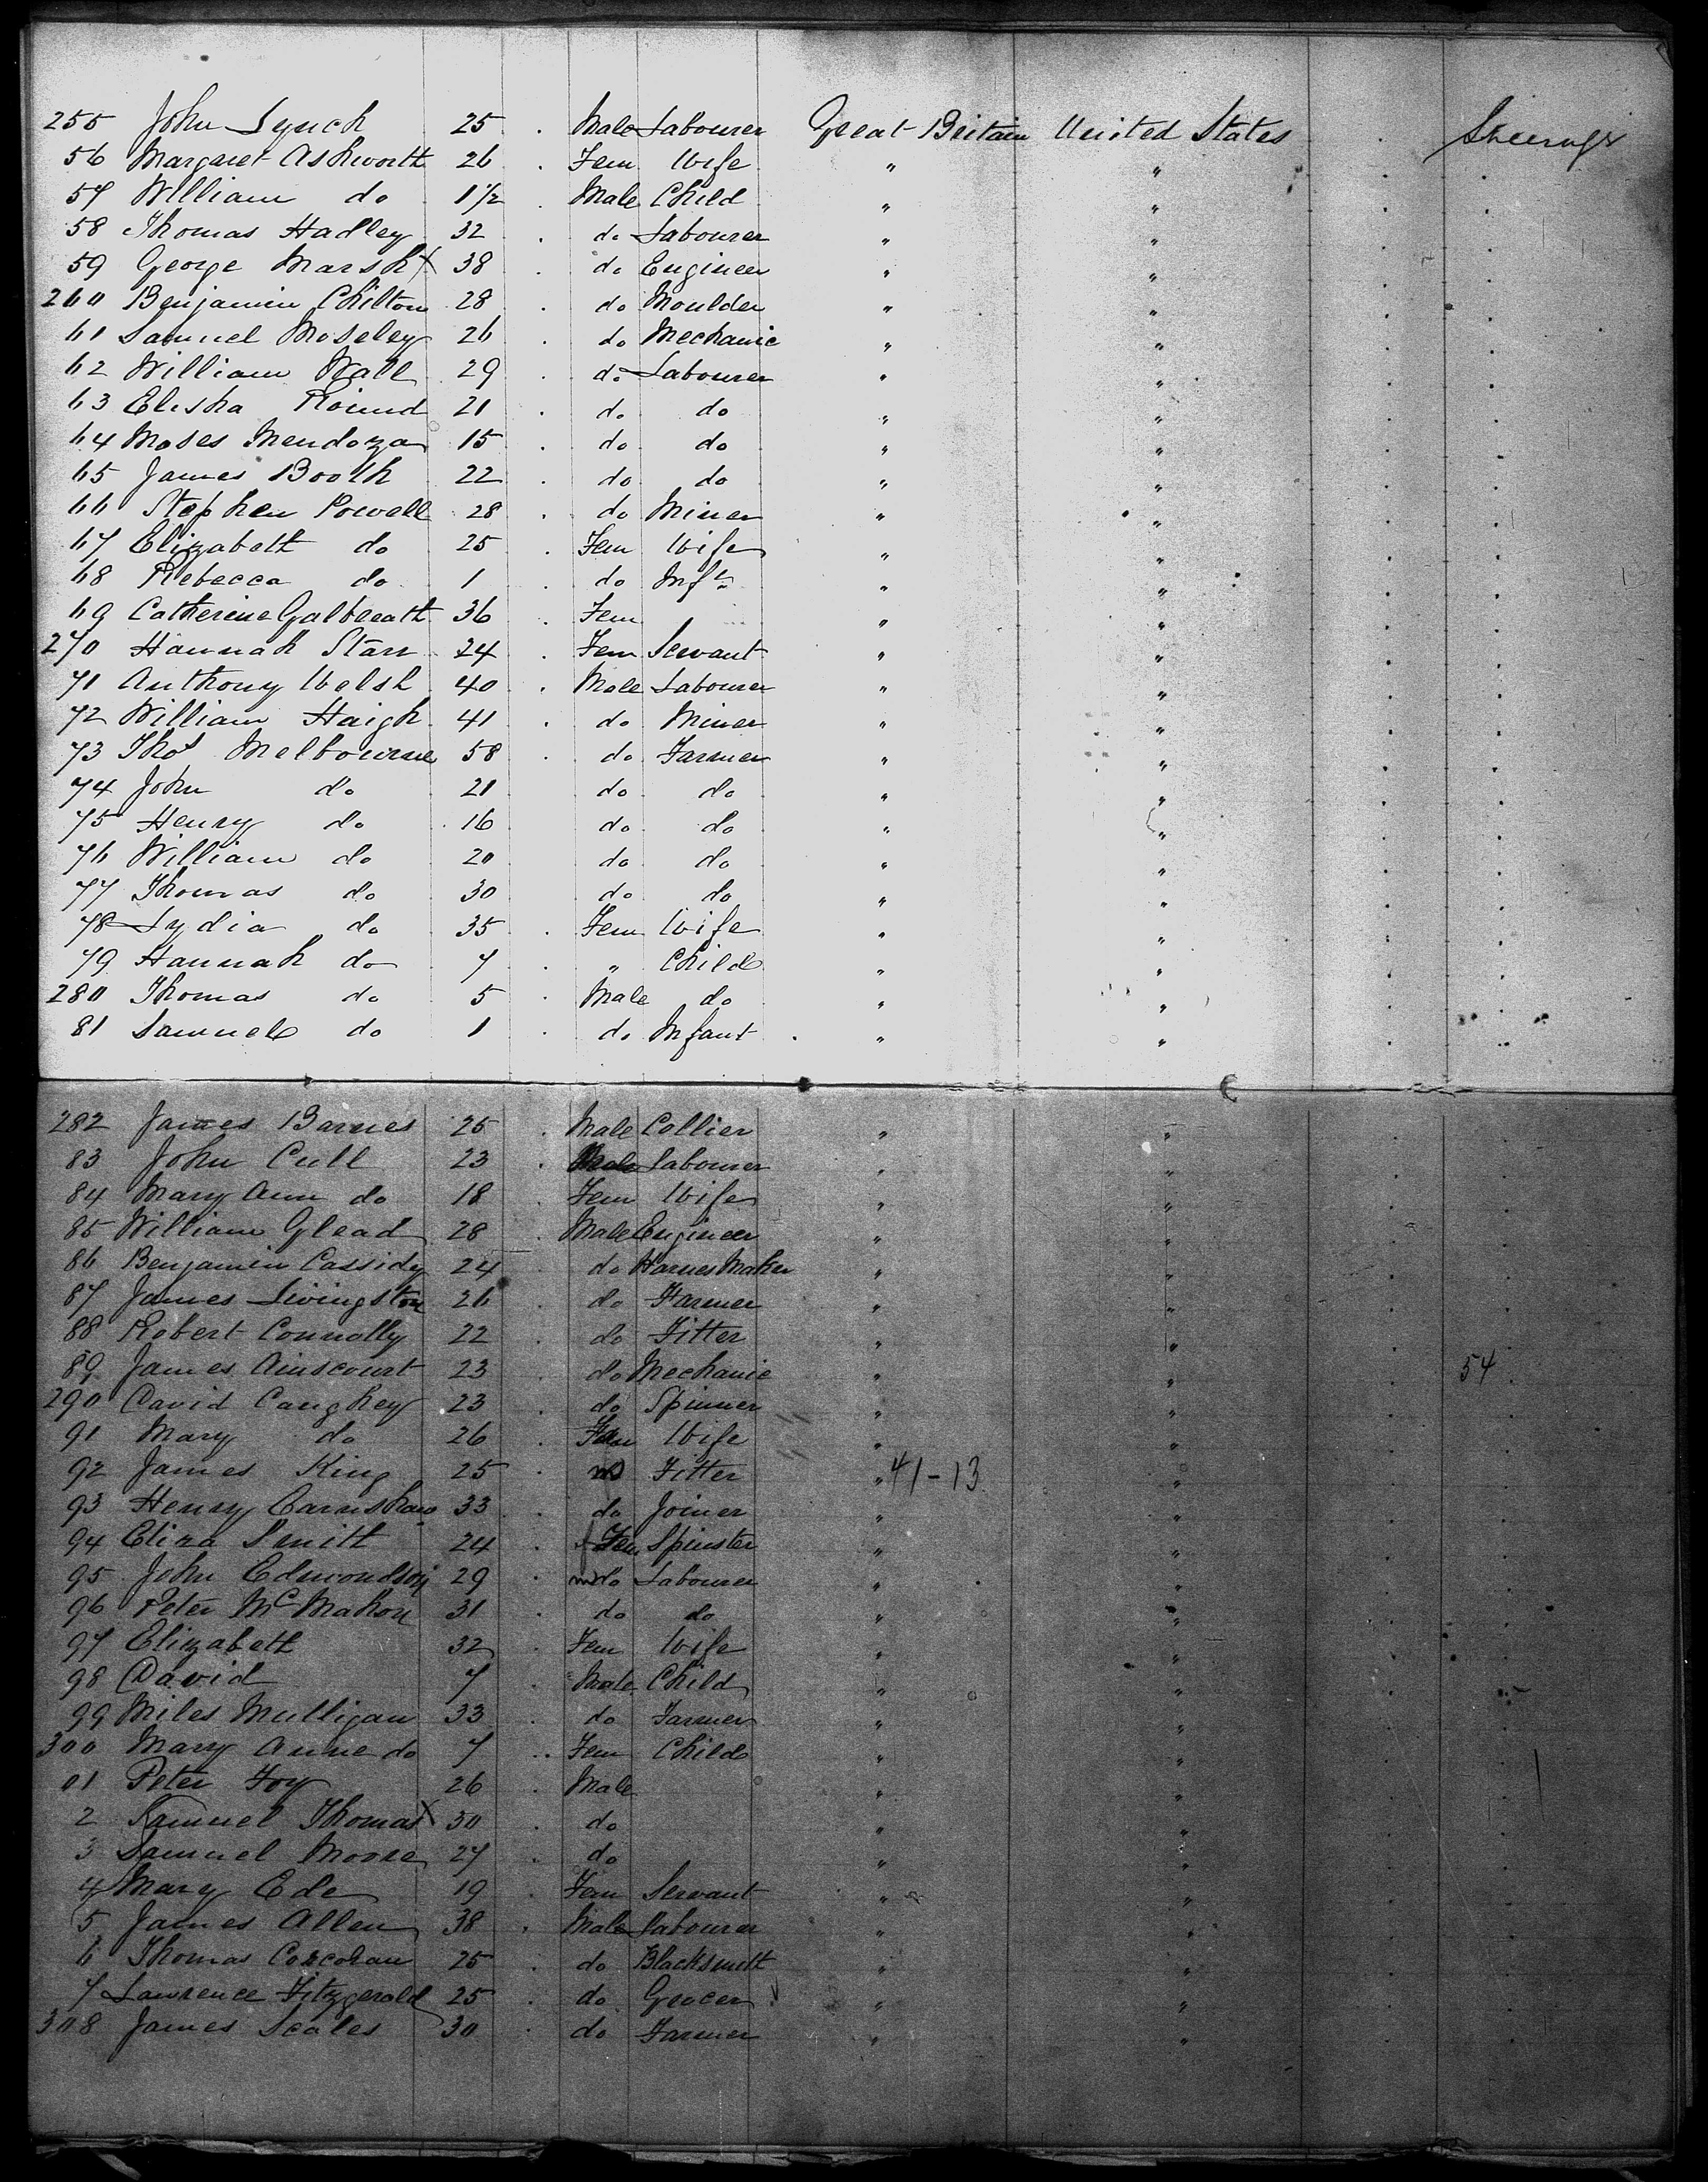 255 John Lynch 25 . Male Labourer Great Britain United States . Steerage
56 Margaret Ashworth 26 . Fem Wife " " . .
57 William do 1 1/2 . Male Child " " . .
58 Thomas Hadley 32 . do Labourer " " . .
59 George Marsh X 38 . do Engineer " " . .
260 Benjamin Chilton 28 . do Moulder " " . .
61 Samuel Moseley 26 . do Mechanic " " . .
62 William Wall 29 . do Labourer " " . .
63 Elisha Round 21 . do do " " . .
64 Moses Mendoza 15 . do do " " . .
65 James Booth 22 . do do " " . .
66 Stephen Powell 28 . do Miner " " . .
67 Elizabeth do 25 . Fem Wife " " . .
68 Rebecca do 1 . do Inft " " . .
69 Catherine Galbreath 36 . Fem " " . .
270 Hannah Starr 24 . Fem Servant " " . .
71 Anthony Welsh 40 . Male Labourer " " . .
72 William Haigh 41 . do Miner " " . .
73 Thos Melbourne 58 . do Farmer " " . .
74 John do 21 do do " " . .
75 Henry do 16 do do " " . .
76 William do 20 do do " " . .
77 Thomas do 30 do do " " . .
78 Lydia do 35 . Fem Wife " " . .
79 Hannah do 7 . " Child " " . .
280 Thomas do 5 . Male do " " . .
81 Samuel do 1 . do Infant " " . .
282 James Barnes 25 . Male Collier " "
83 John Cull 23 . Male Labourer " "
84 Mary Ann do 18 . Fem Wife " "
85 William Glead 28 . Male Engineer " "
86 Benjamin Cassidy 24 do Harnes Maker " "
87 James Livingston 26 . do Farmer " "
88 Robert Connolly 22 . do Fitter " "
89 James Ainscourt 23 do Mechanic " " 54
290 David Caughey 23 . do Spinner " "
91 Mary do 26 . Fem Wife " "
92 James King 25 . m Fitter " 41-13 "
93 Henry Earnshaw 33 . do Joiner " "
94 Eliza Smith 24 . f Fem Spinster " "
95 John Edmondson 29 . m do Labourer " "
96 Peter McMahon 31 . do do " "
97 Elizabeth 32 . Fem Wife " "
98 David 7 . Male Child " "
99 Miles Mulligan 33 . do Farmer " "
300 Mary Anne do 7 . Fem Child " "
01 Peter Foy 26 . Male " "
2 Samuel Thomas X 30 . do " "
3 Samuel Moore 27 . do " "
4 Mary Ede 19 Fem Servant " "
5 James Allen 38 . Male Labourer " "
6 Thomas Corcoran 25 . do Blacksmith " "
7 Lawrence Fitzgerald 25 . do Grocer " "
308 James Scales 30 . do Farmer " "